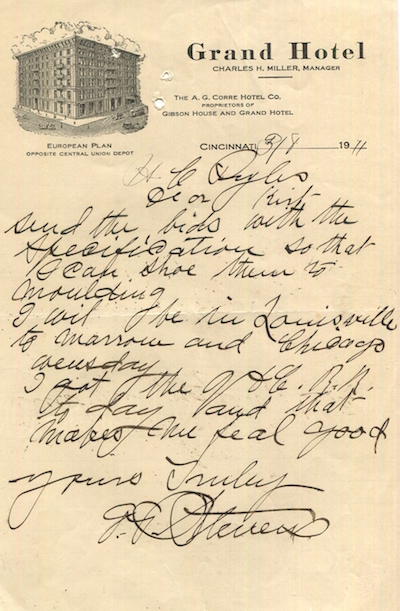 Grand Hotel
CHARLES H. MILLER, MANAGER
THE A. G. CORRE HOTEL CO.
PROPRIETORS OF
GIBSON HOUSE AND GRAND HOTEL
EUROPEAN PLAN
OPPOSITE CENTRAL UNION DEPOT
CINCINNATI, 2/8 1911
H C
Dear
send the bids with the
specification so that
I can shoe them to
moulding
I wil be in Louisville
to marrow and Chicago
wensday
I got the R.R.
to day and that
makes me feal good
yours Truley
Stevens